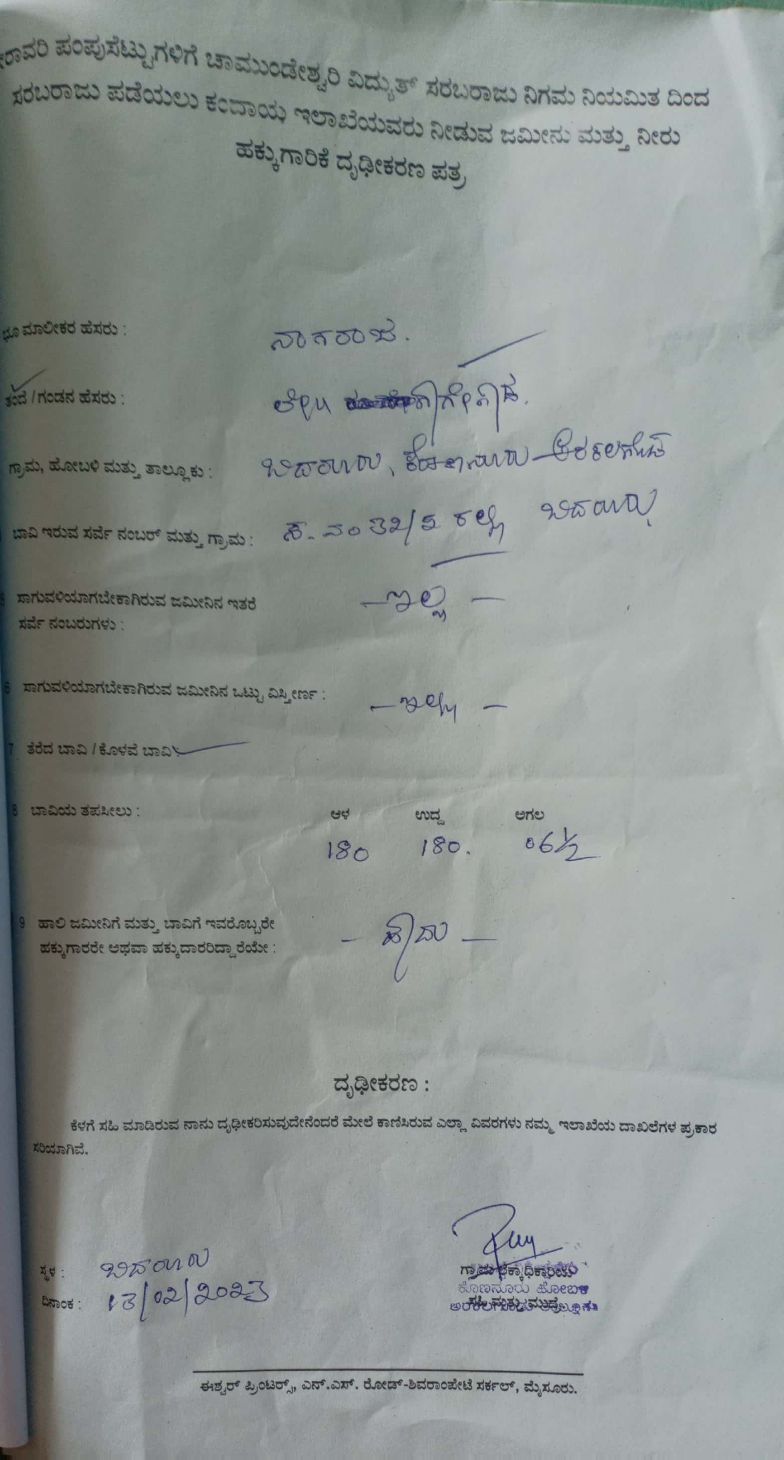 ರಾವರಿ ಪಂಪುಸೆಟ್ಟುಗಳಿಗೆ ಚಾಮುಂಡೇಶ್ವರಿ ವಿದ್ಯುತ್ ಸರಬರಾಜು ನಿಗಮ ನಿಯಮಿತ ದಿಂದ
ಸರಬರಾಜು ಪಡೆಯಲು ಕಂದಾಯ ಇಲಾಖೆಯವರು ನೀಡುವ ಜಮೀನು ಮತ್ತು ನೀರು
ಹಕ್ಕುಗಾರಿಕೆ ದೃಢೀಕರಣ ಪತ್ರ
ಭೂ ಮಾಲೀಕರ ಹೆಸರು : ನಾಗರಾಜ.
ತಂದೆ / ಗಂಡನ ಹೆಸರು :
ಗ್ರಾಮ, ಹೋಬಳಿ ಮತ್ತು ತಾಲ್ಲೂಕು : ಬಿದರೂರು, ಕೊಣನೂರು ಅರಕಲಗೂಡು
ಬಾವಿ ಇರುವ ಸರ್ವೆ ನಂಬರ್ ಮತ್ತು ಗ್ರಾಮ : ಸ. ನಂ 32/5 ರಲ್ಲಿ ಬಿದರೂರು
5 ಸಾಗುವಳಿಯಾಗಬೇಕಾಗಿರುವ ಜಮೀನಿನ ಇತರೆ - ಇಲ್ಲ -
ಸರ್ವೆ ನಂಬರುಗಳು :
6 ಸಾಗುವಳಿಯಾಗಬೇಕಾಗಿರುವ ಜಮೀನಿನ ಒಟ್ಟು ವಿಸ್ತೀರ್ಣ : - ಇಲ್ಲ -
7 ತೆರೆದ ಬಾವಿ / ಕೊಳವೆ ಬಾವಿ
8 ಬಾವಿಯ ತಪಸೀಲು : ಆಳ ಉದ್ದ ಅಗಲ
180 180. 06 1/2
9 ಹಾಲಿ ಜಮೀನಿಗೆ ಮತ್ತು ಬಾವಿಗೆ ಇವರೊಬ್ಬರೇ - ಹೌದು -
ಹಕ್ಕುಗಾರರೇ ಅಥವಾ ಹಕ್ಕುದಾರರಿದ್ದಾರೆಯೇ :
ದೃಢೀಕರಣ :
ಕೆಳಗೆ ಸಹಿ ಮಾಡಿರುವ ನಾನು ದೃಢೀಕರಿಸುವುದೇನೆಂದರೆ ಮೇಲೆ ಕಾಣಿಸಿರುವ ಎಲ್ಲಾ ವಿವರಗಳು ನಮ್ಮ ಇಲಾಖೆಯ ದಾಖಲೆಗಳ ಪ್ರಕಾರ
ಸರಿಯಾಗಿವೆ.
ಸ್ಥಳ : ಬಿದರೂರು
ಗ್ರಾಮ ಲೆಕ್ಕಾಧಿಕಾರಿಯ
ಕೊಣನೂರು ಹೋಬಳಿ
ದಿನಾಂಕ : 13/02/2023
ಸಹಿ ಮತ್ತು ಮುದ್ರೆ
ಈಶ್ವರ್ ಪ್ರಿಂಟರ್ಸ್, ಎನ್.ಎಸ್. ರೋಡ್-ಶಿವರಾಂಪೇಟೆ ಸರ್ಕಲ್, ಮೈಸೂರು.